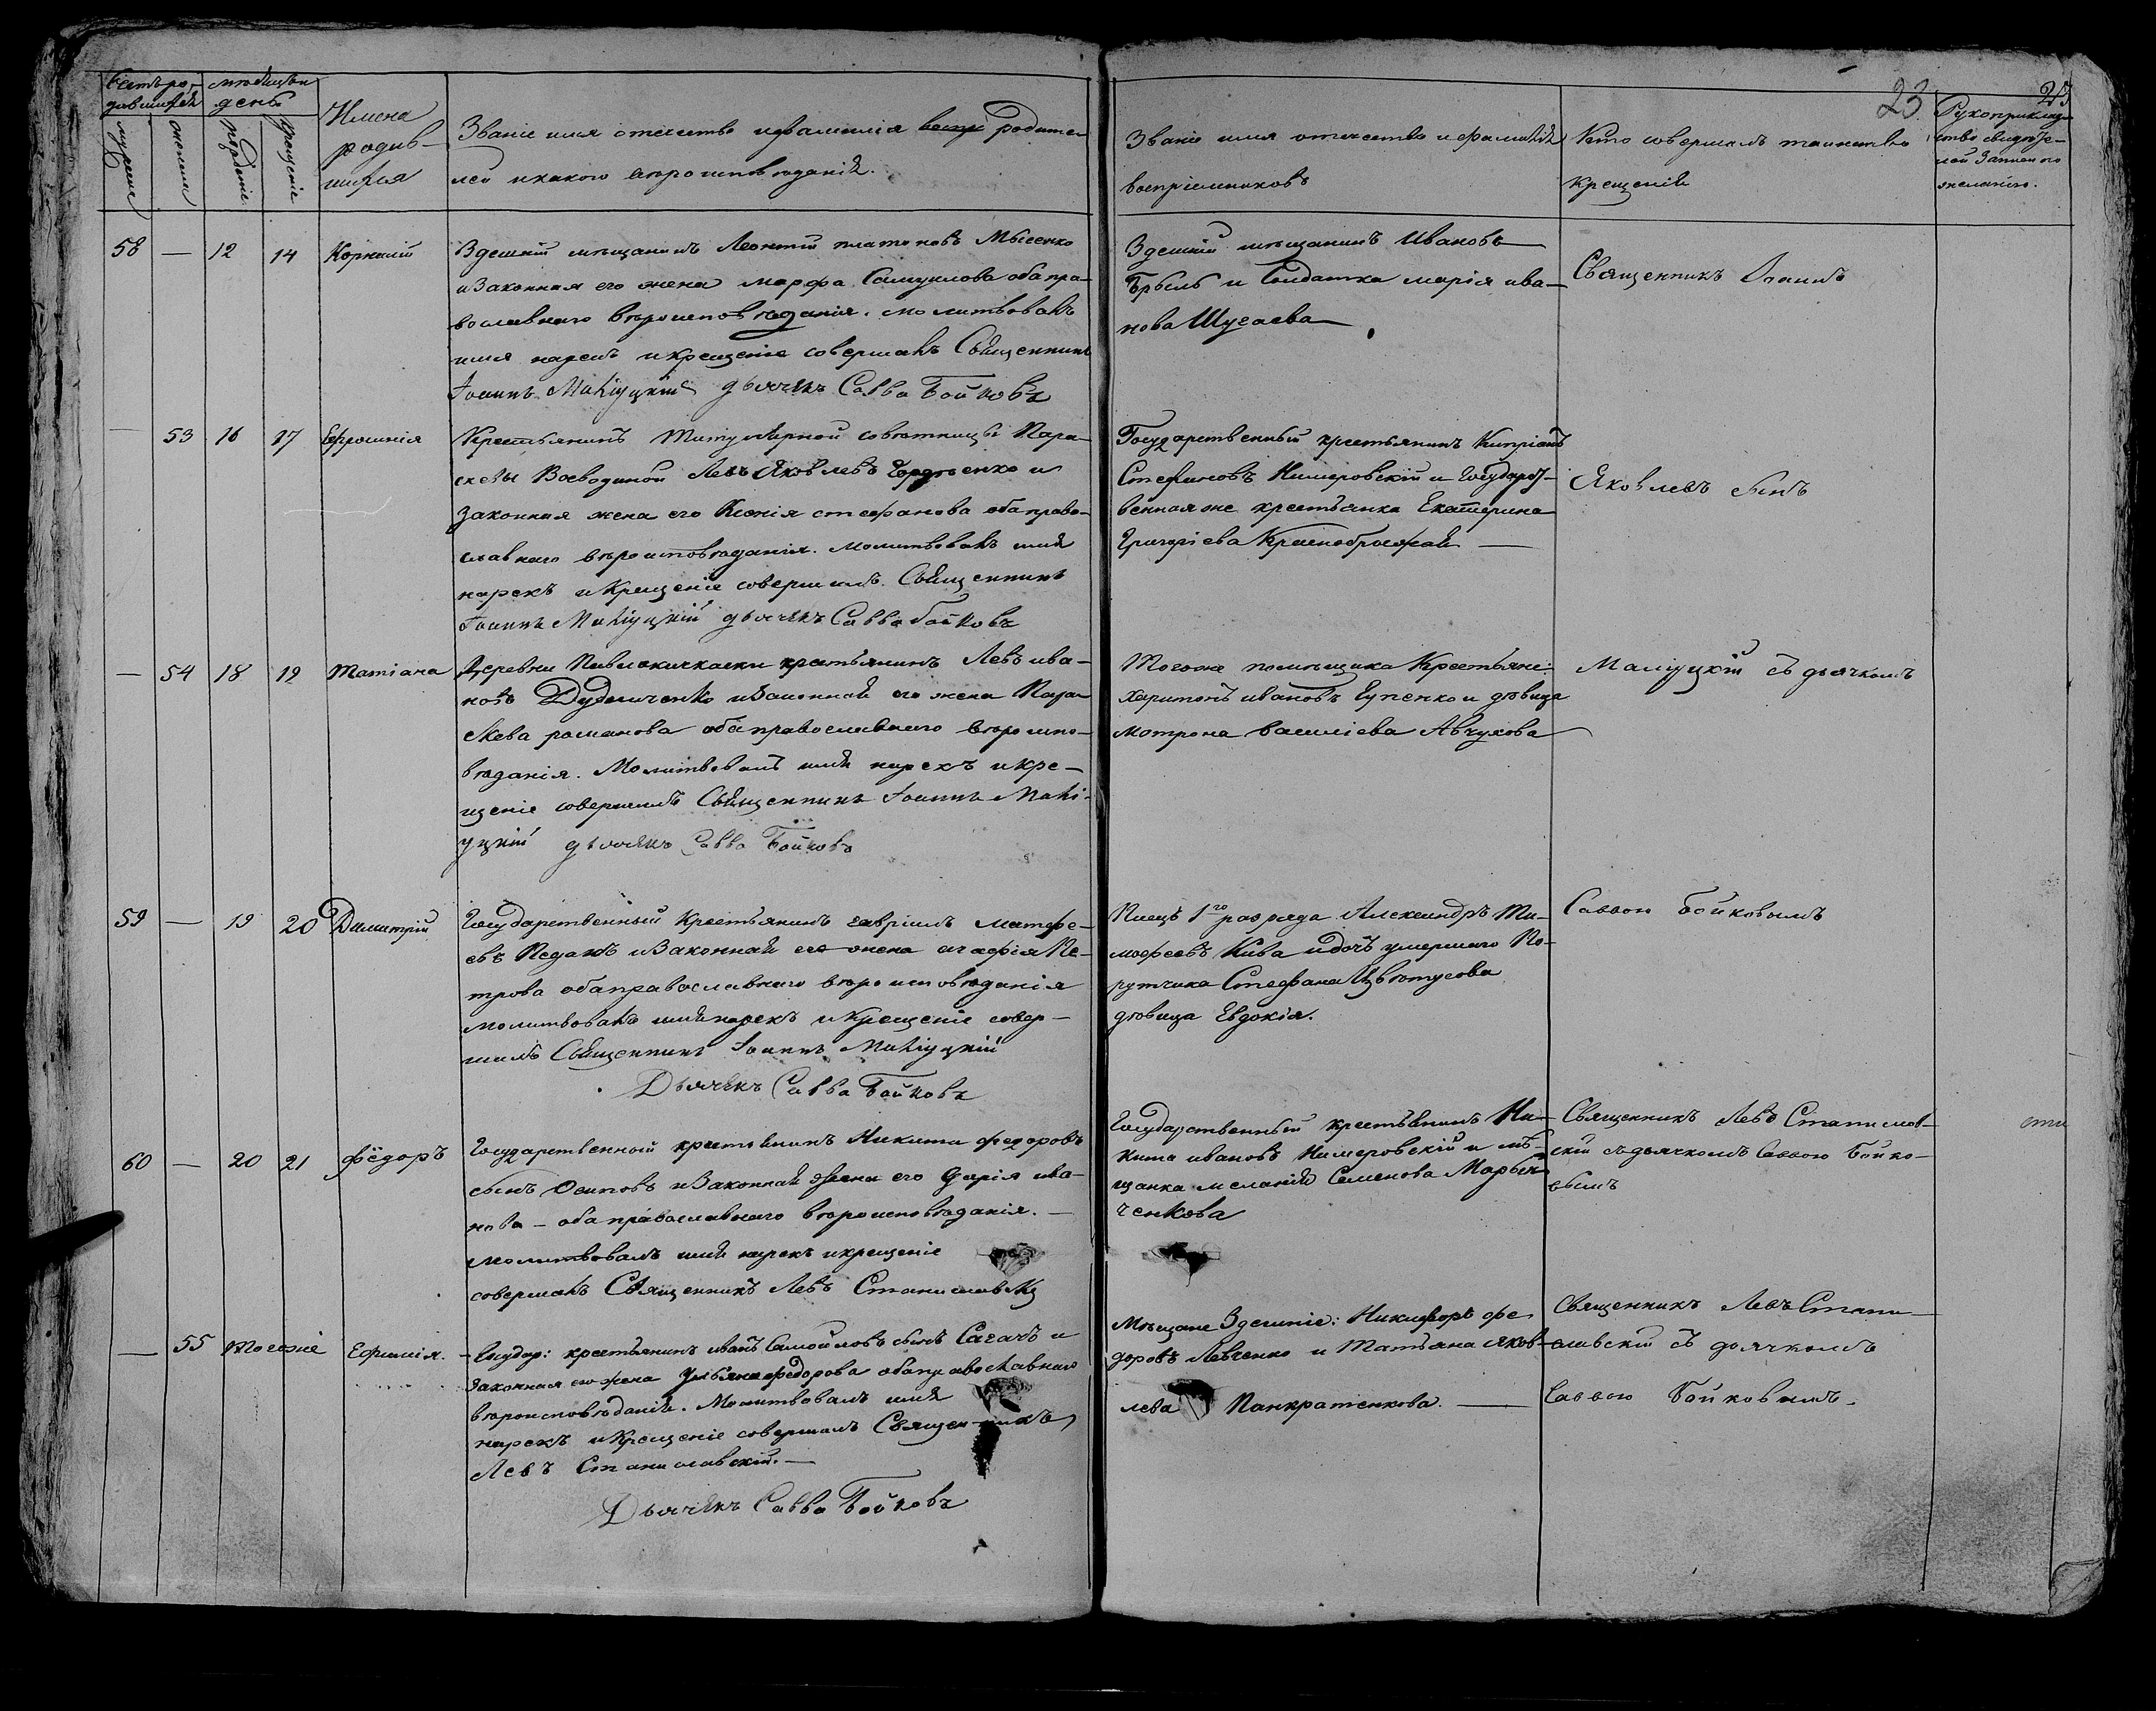 23
23
Счетъ ро-
дившихся
мѣсяцъ и
день
мужеск
женска
рожденіе
крещеніе
Имена
родив-
шихся
Званіе имя отечество и фамилія родите-
лей и какого вѣроисповѣданія.
Званіе имя отечество и фамилія
воспріемниковъ
Кто совершалъ таинство
крещенія
Рукоприклад-
ство свидѣте-
лей записи по
желанію.
58 — 12 14 Корнилій
Здешній мѣщанинъ Леонтій платоновъ Мысенко
и Законная его жена марфа Самуилова оба пра-
вославнаго вѣроисповѣданія. молитвовалъ
имя нарекъ и крещеніе совершалъ Священникъ
Іоаннъ Малиуцкій дьячекъ Савва Бойковъ
Здешній мѣщанинъ Ивановъ
Брыль и Солдатка марія ива-
нова Шугаева
Священникъ Іоаннъ
— 53 16 17 Ефросинія
Крестьянинъ Титулярной совѣтницы Пара-
скевы Воеводиной Левъ Яковлевъ Гордѣенко и
законная жена его Ксенія стефанова оба право-
славнаго вѣроисповѣданія. молитвовалъ имя
нарекъ и Крещеніе совершилъ Священникъ
Іоаннъ Малиуцкій дьячекъ Савва Бойковъ
Государственный крестьянинъ Кипріанъ
Стефановъ Нимеровскій и Государст-
венная же крестьянка Екатерина
Григоріева Краснобрыжая —
Яковлевъ сынъ
— 54 18 19 Татіана
Деревни крестьянинъ Левъ ива-
новъ Дудниченко и Законная его жена Пара-
скева романова оба православнаго вѣроиспо-
вѣданія. Молитвовалъ имя нарекъ и кре-
щеніе совершилъ Священникъ Іоаннъ Мали-
уцкій дьячекъ Савва Бойковъ
Тогоже помѣщика Крестьяне:
харитонъ ивановъ Еуненко и дѣвица
мотрона василіева Авчухова
Маліуцкій съ дьячкомъ
59 — 19 20 Димитрій
Государственный Крестьянинъ гавріилъ матфе-
евъ Педанъ и Законная его жена агафія Пе-
трова оба православнаго вѣроисповѣданія
молитвовалъ имя нарекъ и Крещеніе совер-
шилъ Священникъ Іоаннъ Малиуцкій
Дьячекъ Савва Бойковъ
Писецъ 1го разряда Александръ Ти-
мофеевъ Кива и дочь умершаго По-
рутчика Стефана Цвѣтусова
дѣвица Евдокія.
Саввою Бойковымъ
60 — 20 21 Фёдоръ
Государственный крестьянинъ Никита федоровъ
сынъ Осиповъ и Законная жена его Дарія ива-
нова — оба православнаго вѣроисповѣданія. —
молитвовалъ имя нарекъ и крещеніе
совершалъ Священникъ Левъ Станиславскій
Государственный крестьянинъ Ни-
кита ивановъ Нимеровскій и мѣ-
щанка меланія Семенова Марын-
ченкова
Священникъ Левъ Станислав-
скій съ дьячкомъ Саввою Бойко-
вымъ
— 55 Тогоже Ефимія.
Государ: крестьянинъ иванъ Самойловъ сынъ Сагачъ и
Законная его жена Ульяна федорова оба православнаго
вѣроисповѣданія. Молитвовалъ имя
нарекъ и Крещеніе совершалъ Священникъ
Левъ Станиславскій. —
Дьячекъ Савва Бойковъ
Мѣщане Здешніе: Никифоръ фе-
доровъ Левченко и Татьяна яков-
лева Панкратенкова. —
Священникъ Левъ Стани-
славскій съ дьячкомъ
Саввою Бойковымъ.